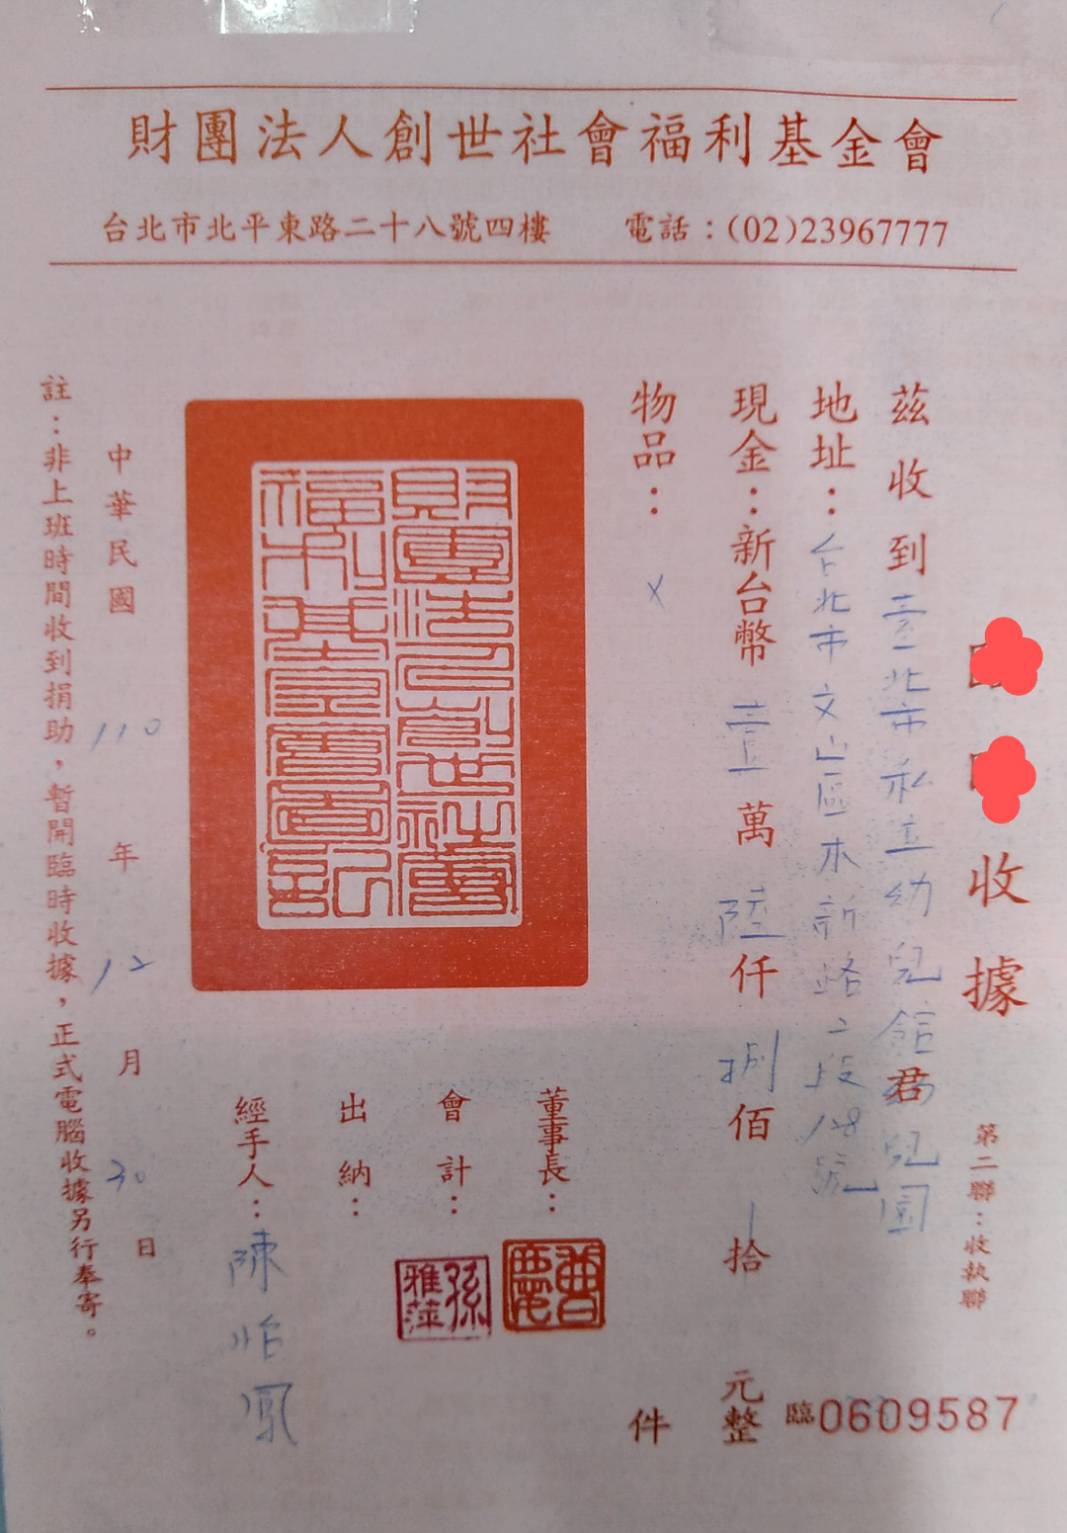 財團法人創世社會福利基金會
台北市北平東路二十八號四樓 電話：(02)23967777
收據
第二聯：收執聯
臨0609587
茲收到臺北市私立幼兒館君幼兒園
地址：台北市文山區木新路二段128號
現金：新台幣壹萬陸仟捌佰 拾 元整
物品：X 件
財團法人創世社會福利基金會圖記
董事長：
曹慶
會計：
孫雅萍
出納：
經手人：陳怡鳳
中華民國110年12月30日
註：非上班時間收到捐助，暫開臨時收據，正式電腦收據另行奉寄。